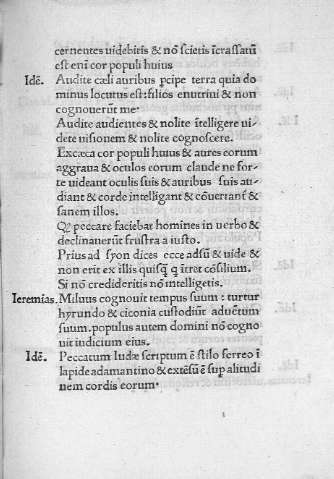 cernentes uidebitis & nõ scietis ĩcrassatũ
est enĩ cor populi huius
Idẽ. Audite cæli auribus p̱cipe terra quia do
minus locutus est: filios enutriui & non
cognouerũt me·
Audite audientes & nolite ĩtelligere ui⸗
dete uisionem & nolite cognoscere.
Excæca cor populi huius & aures eorum
aggraua & oculos eorum claude ne for⸗
te uideant oculis suis & auribus suis au⸗
diant & corde intelligant & cõuertant̃ &
sanem illos.
Q̃ peccare faciebãt homines in uerbo &
declinauerũt frustra a iusto.
Prius ad syon dices ecce adsũ & uide &
non erit ex illis quisq̃ q ĩtret cõsilium.
Si nõ credideritis nõ intelligetis.
Ieremias. Miluus cognouit tempus suum: turtur
hyrundo & ciconia custodiũt aduẽtum
suum. populus autem domini nõ cogno
uit iudicium eius.
Idẽ. Peccatum Iudæ scriptum ẽ stilo ferreo ĩ
lapide adamantino & extẽsũ ẽ sup̱ altitudi
nem cordis eorum·